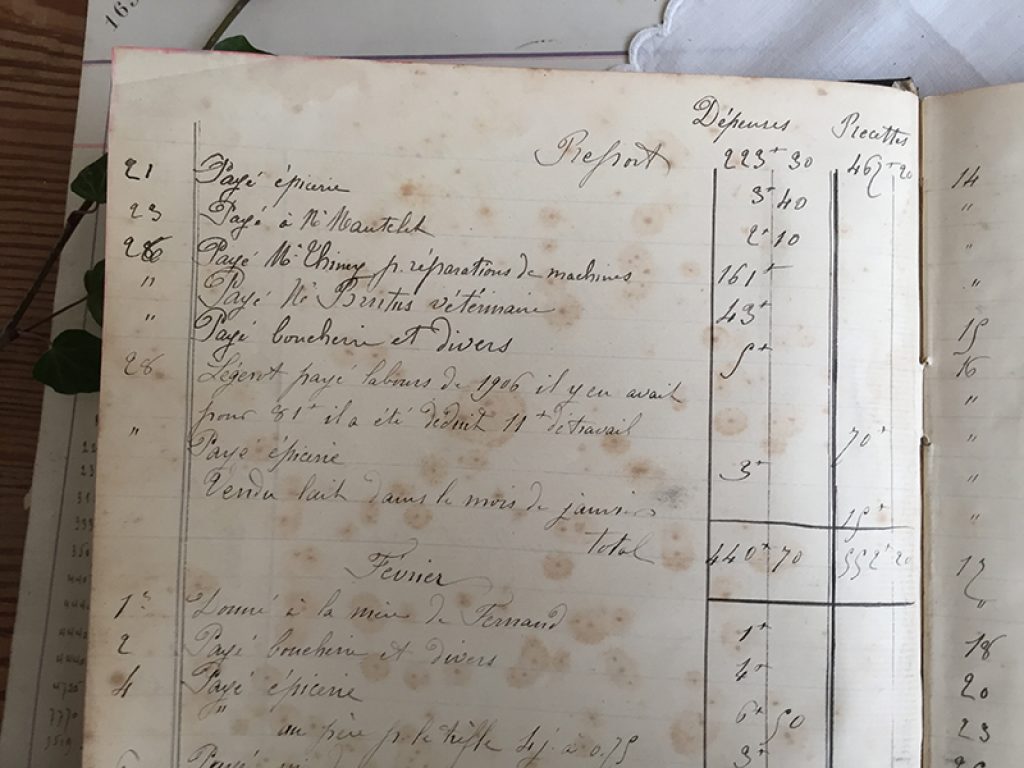 163
Dépenses Recettes
Report 223+ 30 467+ 20
21 Payé épicerie 3+ 40
23 Payé à Mr Mautelet 2+ 10
26 Payé Mr Thiney p. réparations de machines 161+
" Payé Mr Brutus vétérinaire 43+
" Payé boucherie et divers 5+
28 Légerot payé labours de 1906 il y en avait
pour 81+ il a été déduit 11+ de travail 70+
" Payé épicerie 3+
Vendu lait dans le mois de janvier 15+
total 440+ 70 552+ 20
Février
1er Donné à la mère de Fernand 1+
2 Payé boucherie et divers 4+
4 Payé épicerie 6+ 50
" au père p. le trèfle 4 j. à 0.75 3+
Payé
14
"
"
"
15
16
"
"
"
"
17
"
18
20
23